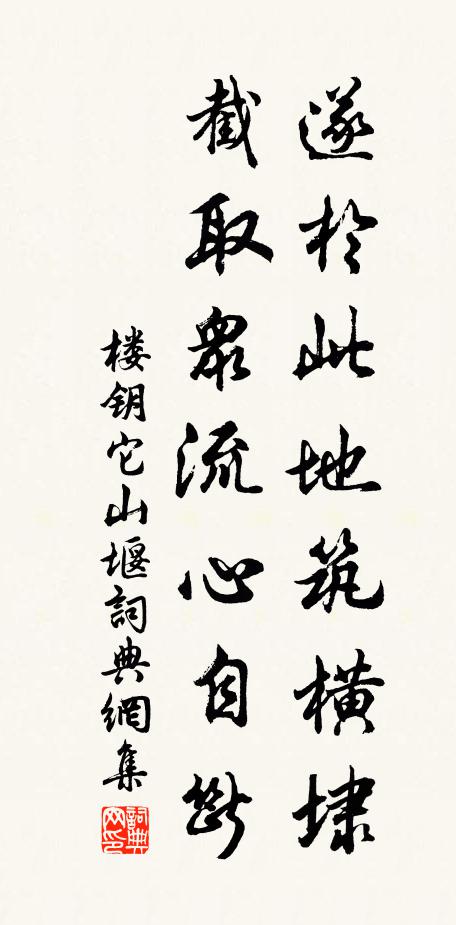 遂於此地筑橫埭
截取眾流心自断
楼钥它山堰詞典網集
詞典网印